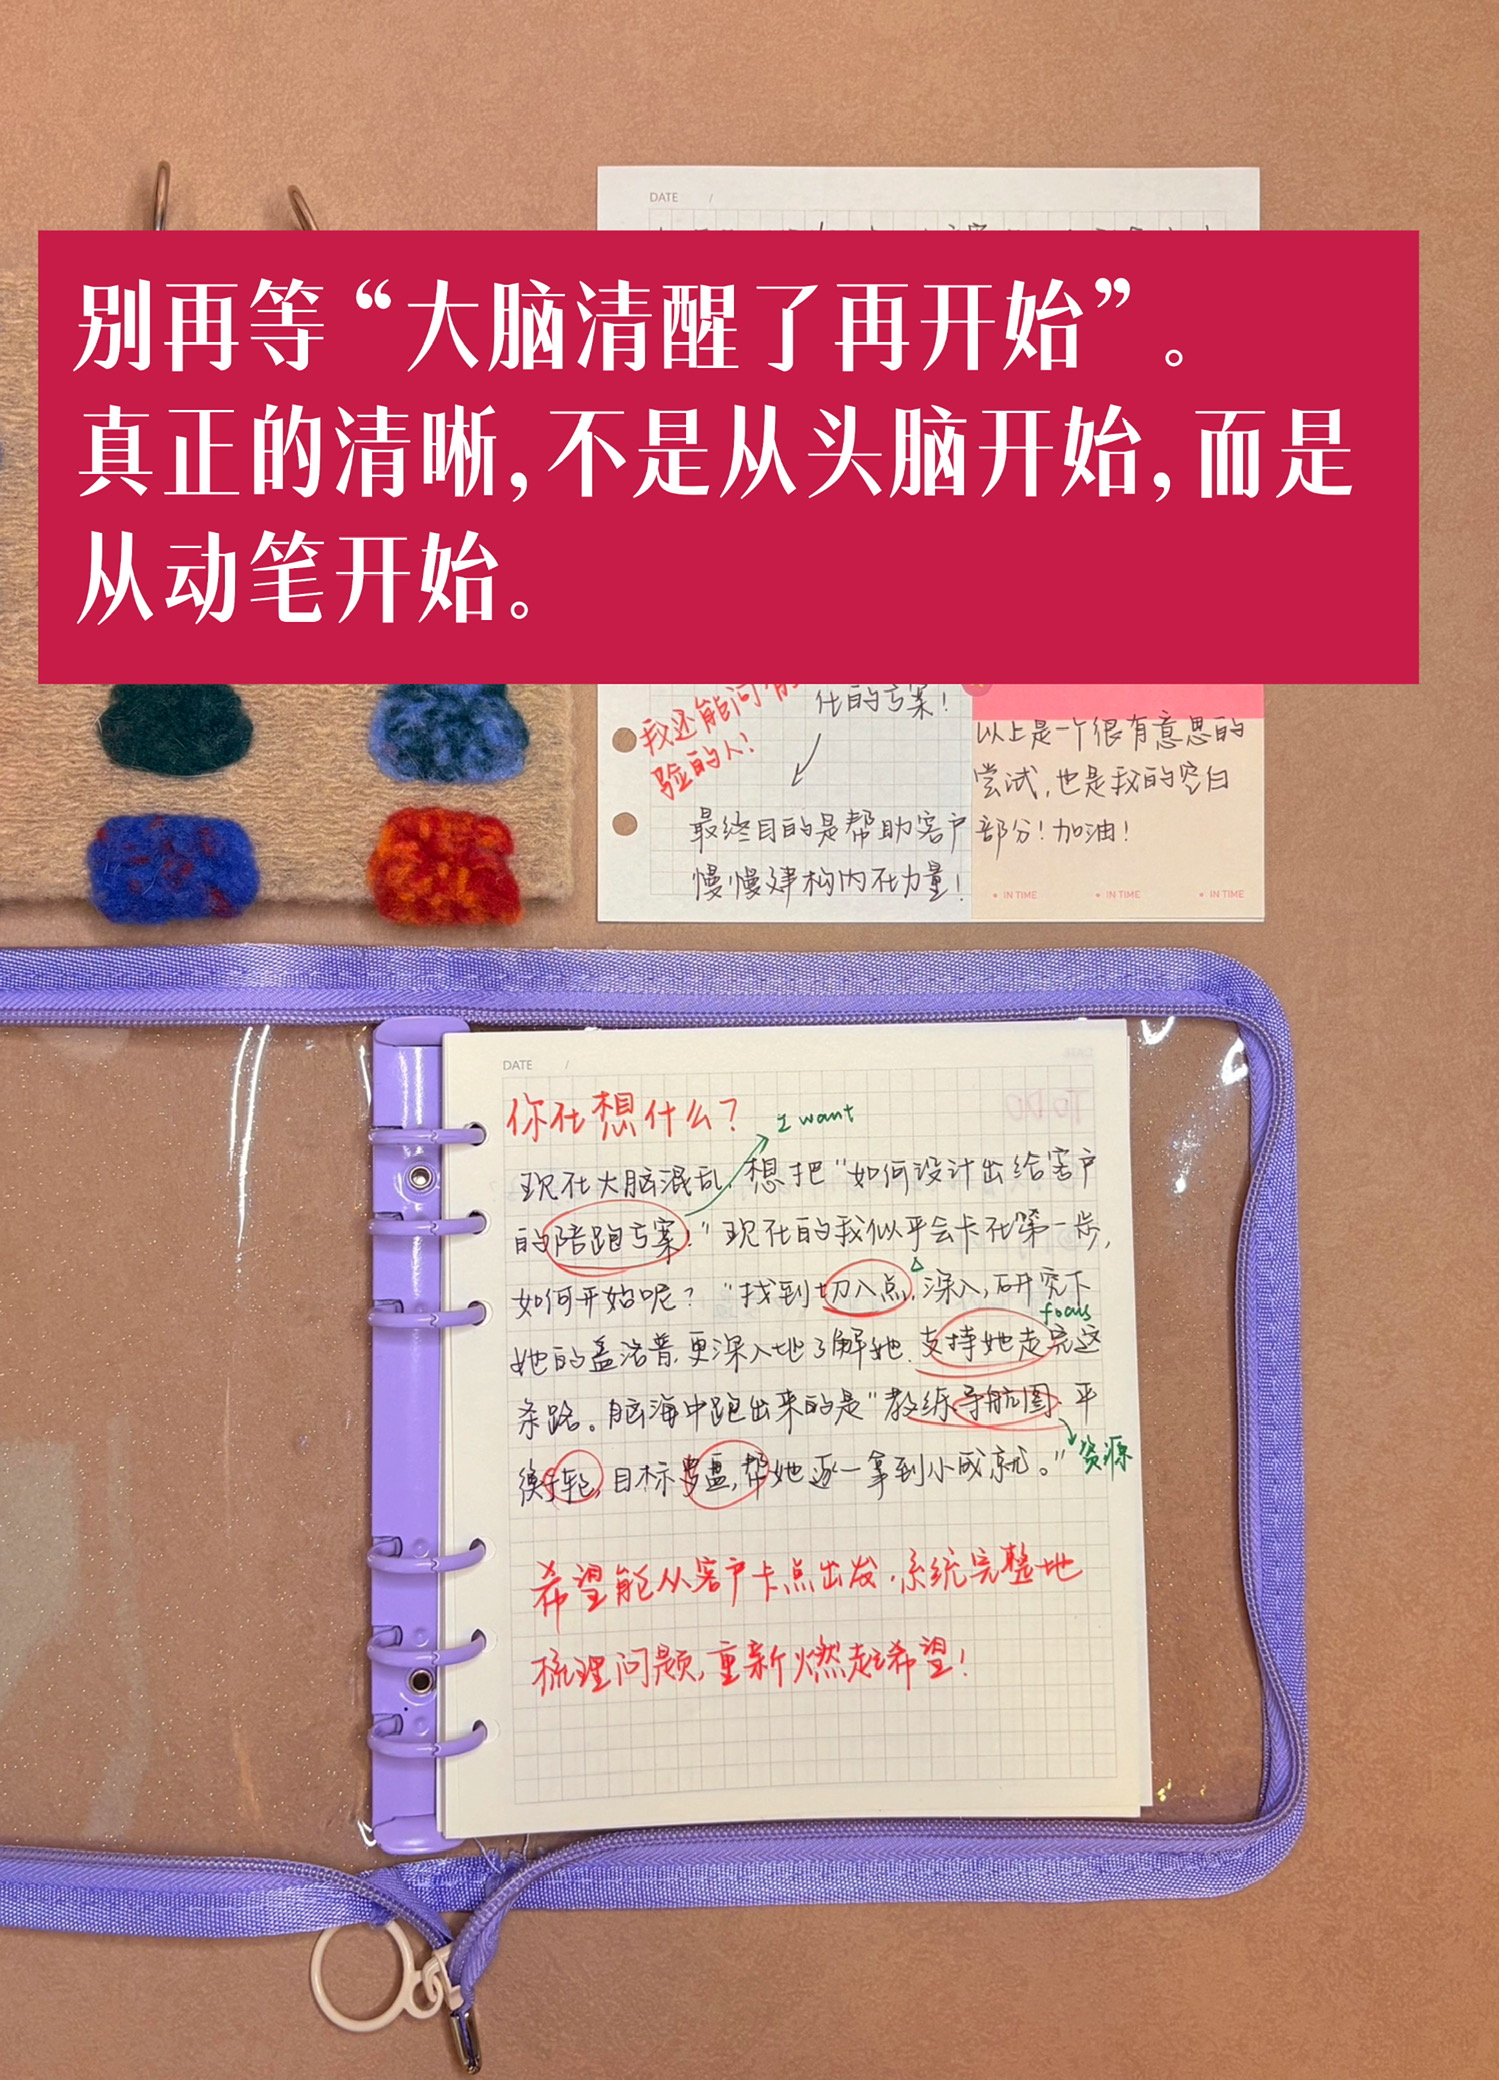 DATE /
别再等“大脑清醒了再开始”。
真正的清晰，不是从头脑开始，而是
从动笔开始。
我还能问有
验的人！
化的方案！
最终目的是帮助客户
慢慢建构内在力量！
以上是一个很有意思的
尝试，也是我的空白
部分！加油！
IN TIME IN TIME IN TIME
DATE /
你在想什么？
I want
现在大脑混乱，想把“如何设计出给客户
的陪跑方案。”现在的我似乎会卡在第一步，
如何开始呢？“找到切入点，深入，研究下
focus
她的盖洛普，更深入地了解她，支持她走完这
条路。脑海中跑出来的是“教练导航图，平
衡轮，目标罗盘，帮她逐一拿到小成就。”
资源
希望能从客户卡点出发，系统完整地
梳理问题，重新燃起希望！
TO DO